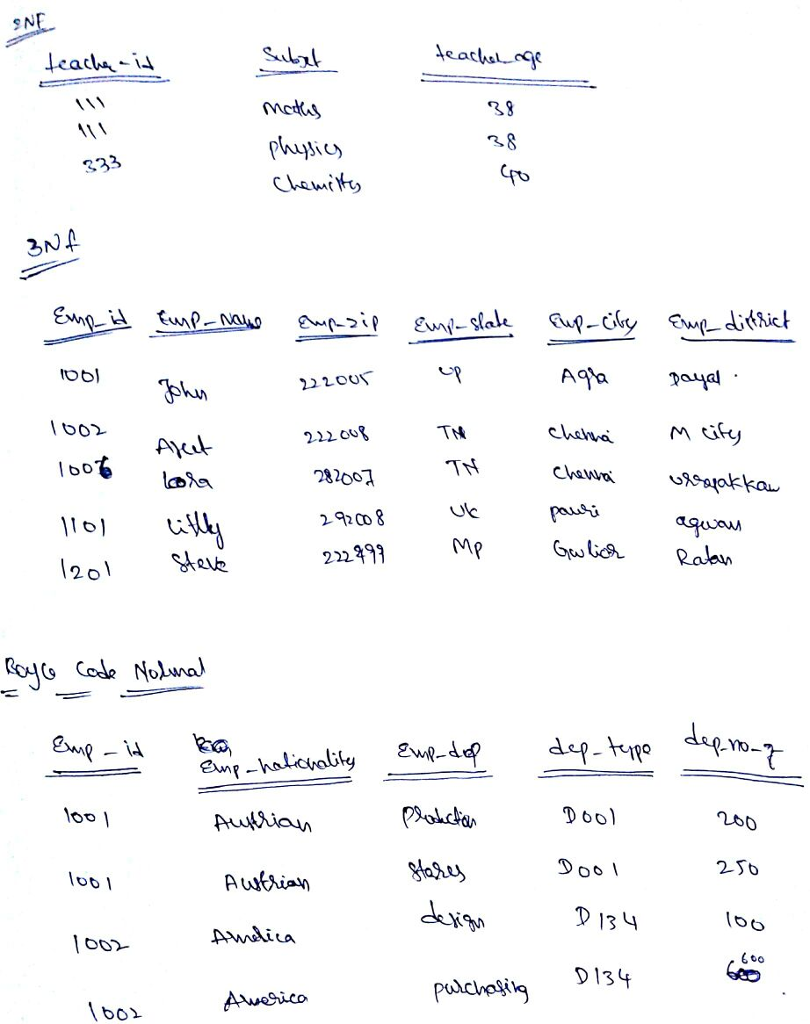 2NF
teacher-id Subjet teacher_age
111 maths 38
111 physics 38
333 Chemistry 40
3Nf
Emp_id Emp_Name Emp_zip Emp_state Emp_City Emp_district
1001 John 222005 up Agra Dayal .
1002 Ajeet 222008 TN Chennai M city
1006 Lora 282007 TN Chennai urrapakkam
1101 Lilly 292008 Uk pauri agwan
1201 Steve 222999 Mp Gwlior Ratan
Boyce Code Normal
Emp_id Emp_nationality Emp_dep dep_type dep_no_
1001 Austrian Production D001 200
1001 Austrian Stores D001 250
1002 America design D134 100
1002 America purchasing D134 600